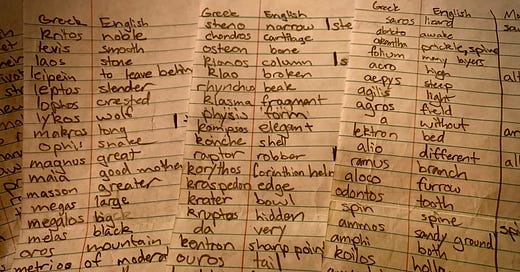 Greek English
kritos noble
levis smooth
laos stone
leipein to leave behin
leptos slender
lophos crested
lykos wolf
makros long
ophis snake
magnus great
maia good mother
masson greater
megas large
megalos big
melas black
oros mountain
metrios of modera
Greek English
steno narrow
chondros cartilage
osteon bone
kianos column
klao broken
rhynchus beak
klasma fragment
physis form
kompsos elegant
konche shell
raptor robber
korythos corinthian helm
kraspedon edge
krater bowl
kruptos hidden
da very
kentron sharp point
ouros tail
Greek English
saros lizard
awake
akantha prickle, spine
folium many layers
acro high
aepys steep
agilis light
agros field
a without
lektron bed
alio different
ramus branch
aloco furrow
odontos tooth
spin spine
ammos sandy ground
amphi both
koilos hollo